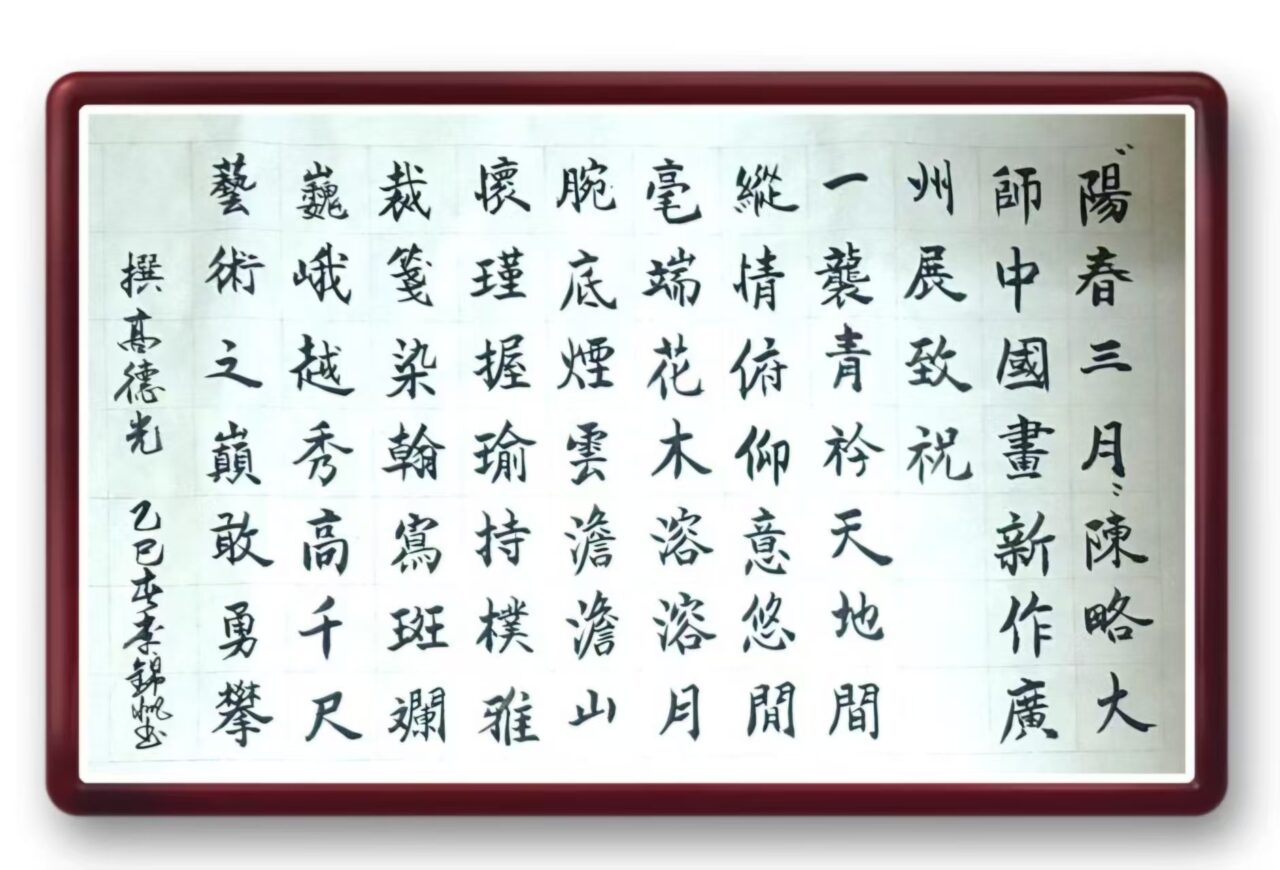 "陽春三月"陳略大
師中國畫新作廣
州展致祝
一襲青衿天地間
縱情俯仰意悠閒
毫端花木溶溶月
腕底煙雲澹澹山
懷瑾握瑜持樸雅
裁箋染翰寫斑斕
巍峨越秀高千尺
藝術之巔敢勇攀
撰高德光 乙巳春李錦帆書